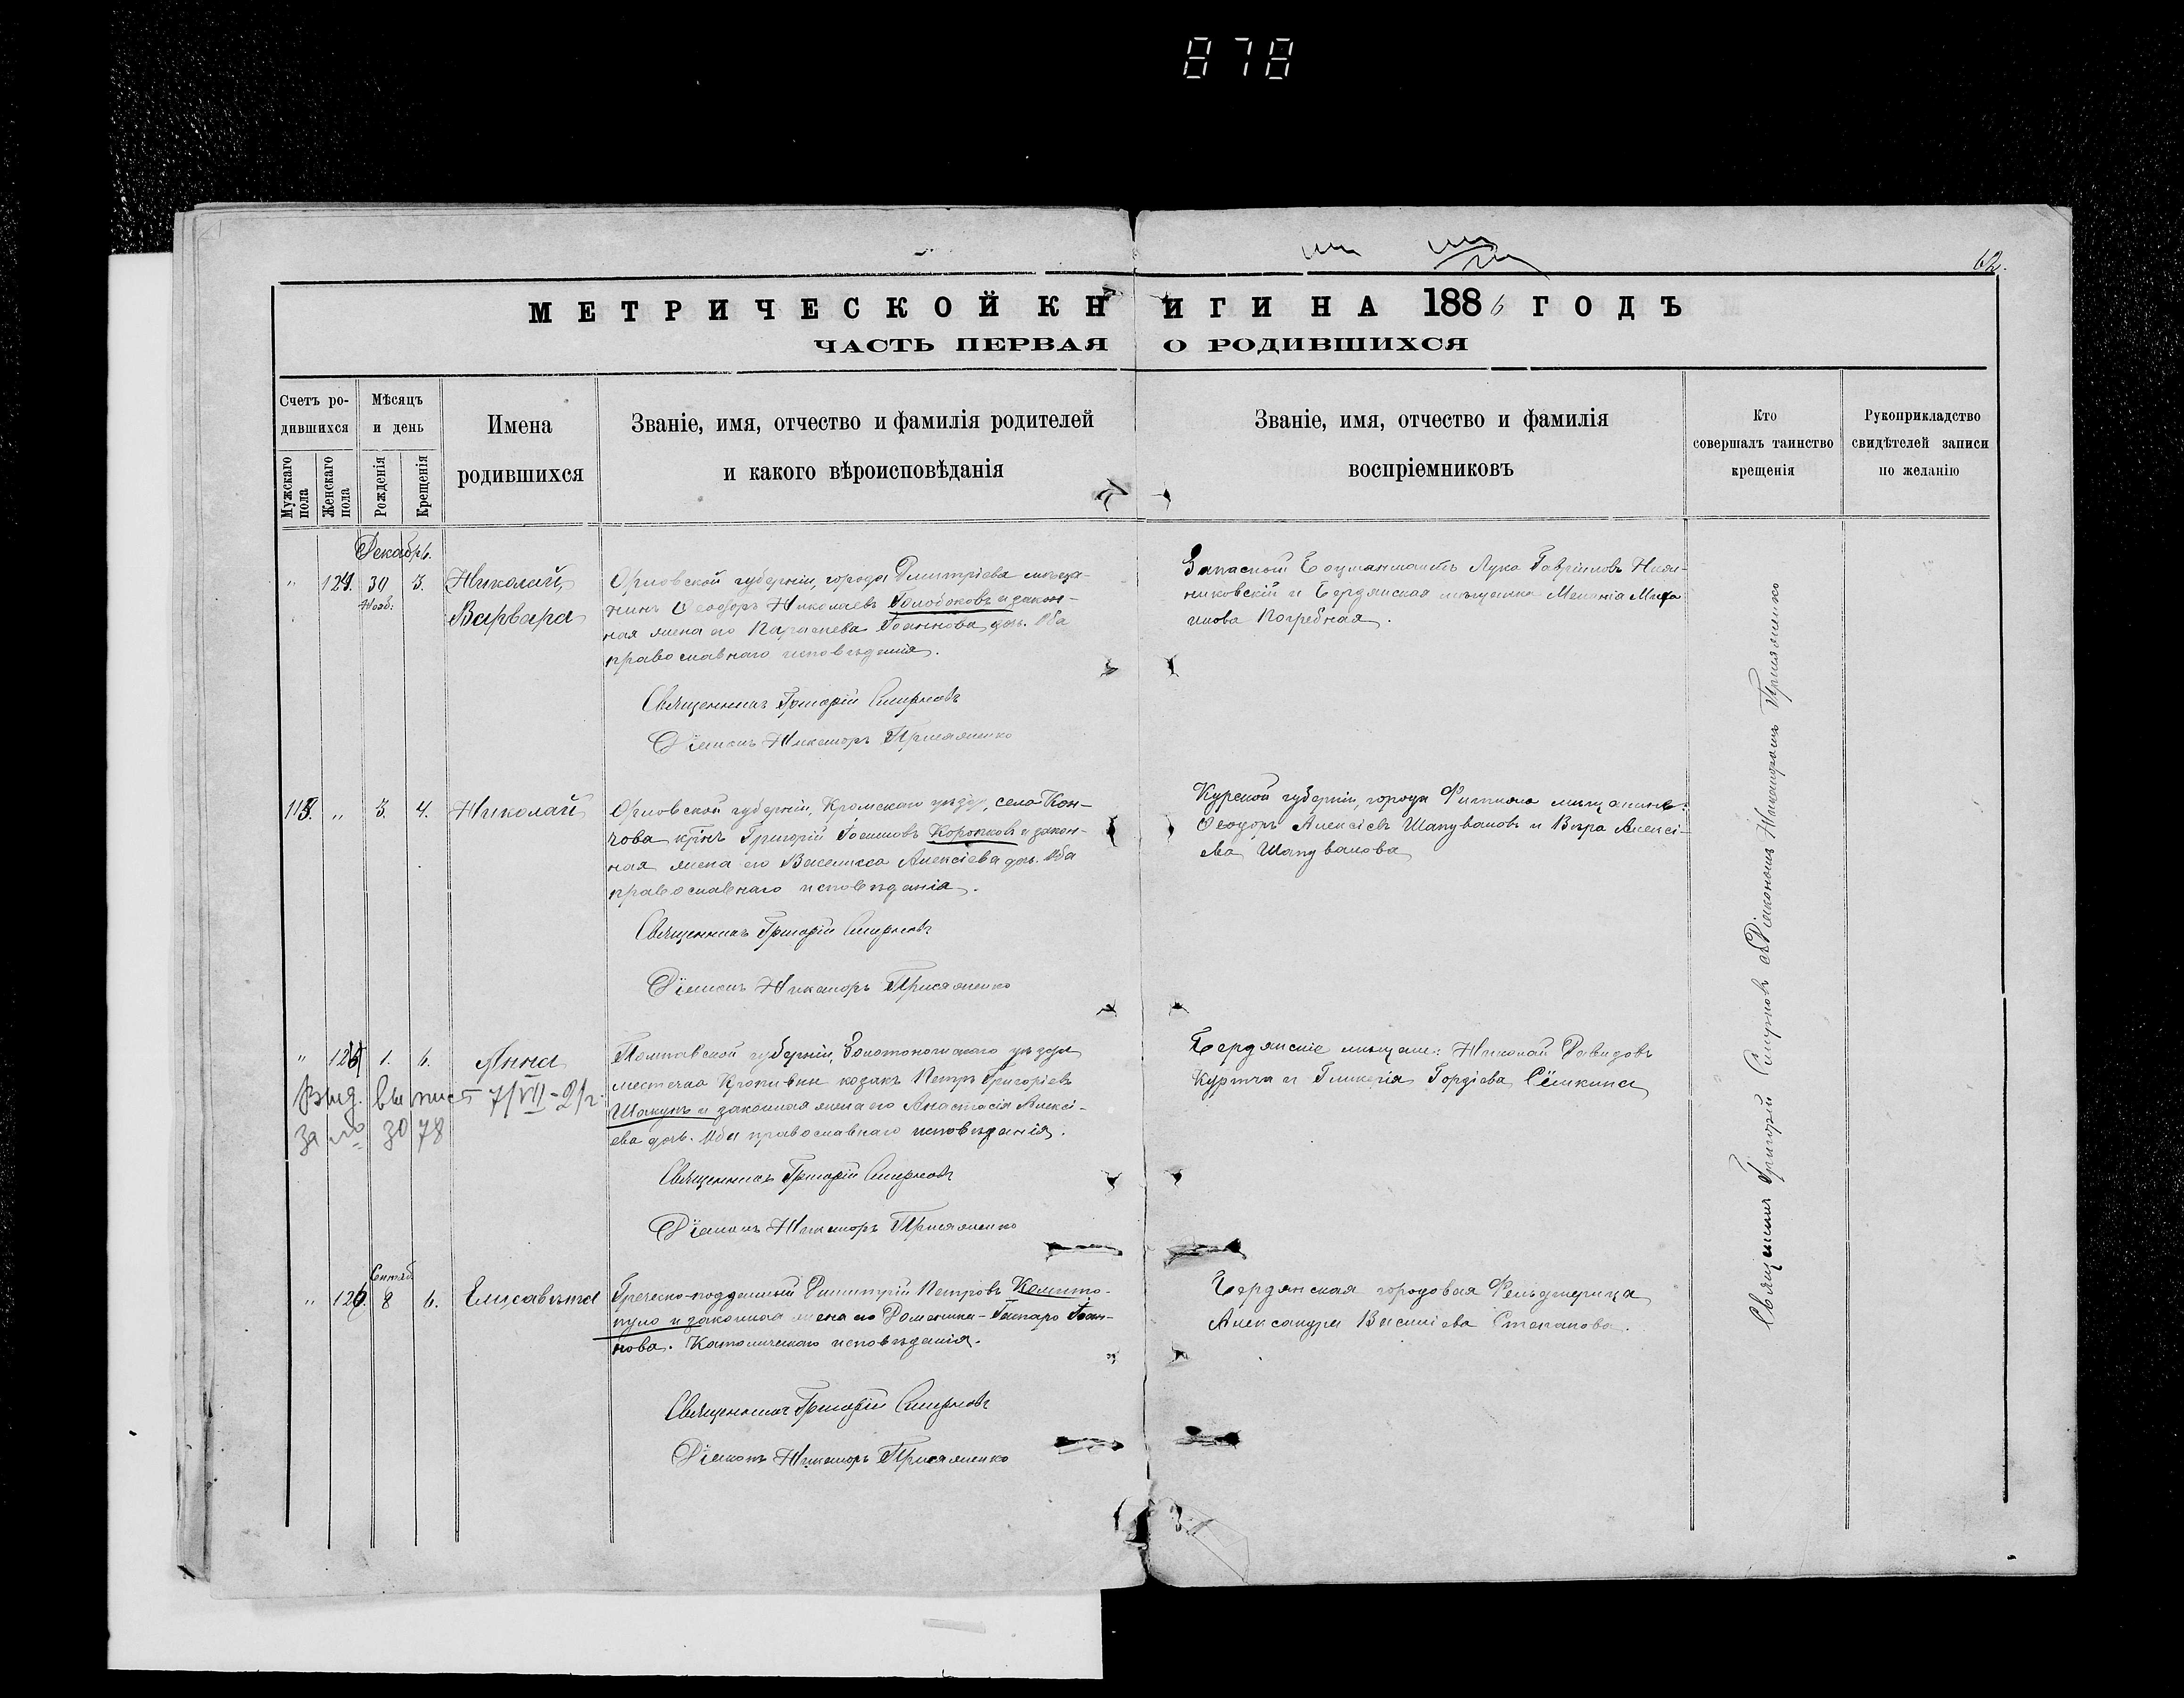 878
62.
МЕТРИЧЕСКОЙ КНИГИ НА 1886 ГОДЪ
ЧАСТЬ ПЕРВАЯ О РОДИВШИХСЯ
Счетъ ро-
дившихся
Мужскаго
пола
Женскаго
пола
Мѣсяцъ
и день
Рожденія
Крещенія
Имена
родившихся
Званіе, имя, отчество и фамилія родителей
и какого вѣроисповѣданія
Званіе, имя, отчество и фамилія
воспріемниковъ
Кто
совершалъ таинство
крещенія
Рукоприкладство
свидѣтелей записи
по желанію
Декабрь.
" 124. 30 3. Николай,
Нояб:
Варвара
Орловской губерніи, города Дмитріева мѣща-
нинъ Ѳеодоръ Николаевъ Голобоковъ и закон-
ная жена его Параскева Іоаннова дочь. Оба
православнаго исповѣданія.
Священникъ Григорій Смирновъ
Діаконъ Никаноръ Присяженко
Запасной Лука Гавріиловъ
и Бердянская мѣщанка Меланія
Погребная.
118. " 3. 4. Николай
Орловской губерніи, Кромскаго уѣзда, села Кон-
чова кр̃нъ Григорій Іоанновъ Коротковъ и закон-
ная жена его Василисса Алексіева дочь. Оба
православнаго исповѣданія.
Священникъ Григорій Смирновъ
Діаконъ Никаноръ Присяженко
Курской губерніи, города мѣщанинъ:
Ѳеодоръ Алексіевъ Шапуваловъ и Вѣра Алексі-
ева Шапувалова
" 125 1. 6. Анна
Выд. выпись 7/VII-21г.
за № 3078
Полтавской губерніи, Золотоношскаго уѣзда
местечка Кропивни козакъ Петръ Григоріевъ
Шакунъ и законная жена его Анастасія Алексі-
ева дочь. Оба православнаго исповѣданія.
Священникъ Григорій Смирновъ
Діаконъ Никаноръ Присяженко
Бердянскіе мѣщане: Николай Давидовъ
Куртча и Гликерія Гордіева Сёмкина
Сентяб.
" 126. 8 6. Елисавѣта
Греческо-подданный Димитрій Петровъ
пуло и законная жена его Іоан-
нова. Католическаго исповѣданія.
Священникъ Григорій Смирновъ
Діаконъ Никаноръ Присяженко
Бердянская городовая Фельдшерица
Александра Василіева Степанова.
Священникъ Григорій Смирновъ съ Діакономъ Никаноромъ Присяженко